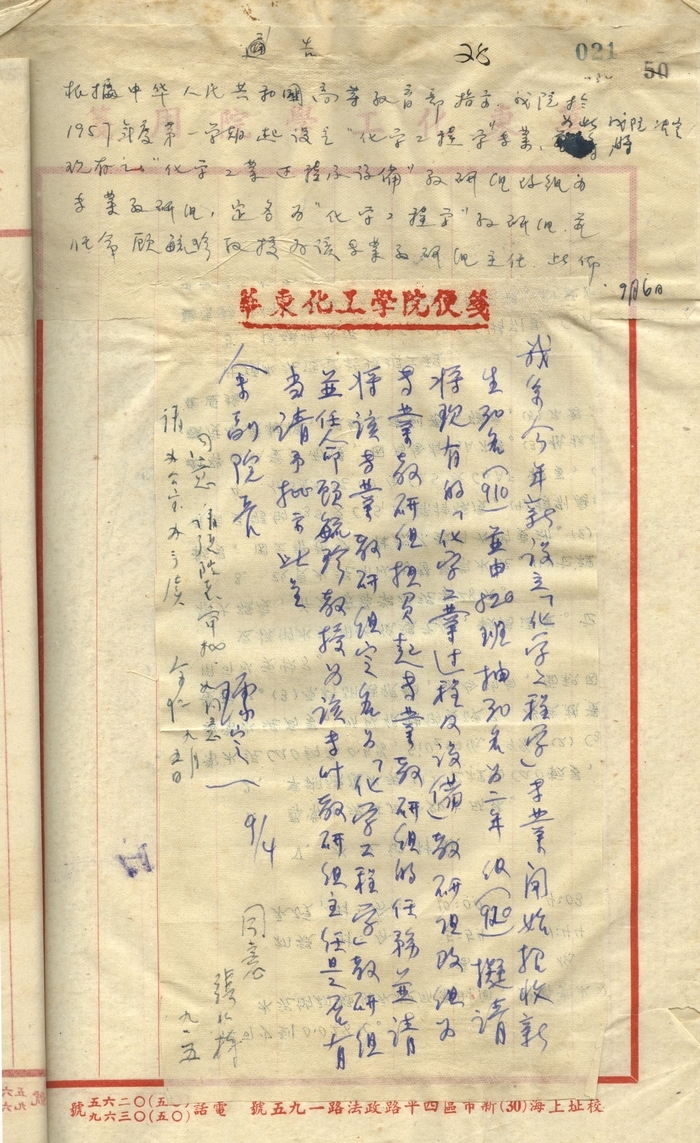 通告
28
021
50
根据中华人民共和国高等教育部指示 我院於
1957年度第一学期起设立"化学工程学"专业,
为此我院决定将
现有之"化学工業过程及设備"教研组改组为
专業教研组,定名为"化学工程学"教研组,並
任命顾毓珍教授为该专業教研组主任 此佈
9月6日
華東化工學院便箋
我系今年新設立「化学工程学」专業開始招收新
生30名(910)並由820班抽30名为二年级(920)擬請
将现有的「化学工業过程及设備」教研组改组为
专業教研组担負起专業教研组的任務並請
将该专業教研组定名为「化学工程学」教研组
並任命顧毓珍教授为该专业教研组主任是否有
当請予批示此呈
余副院長
琚定一 9/4
同意 請張院長審批
余仁 九月五日
請办公室办
同意
張江樹
九.五
校址上海(30)新市區四平路政法路一九五號 電話